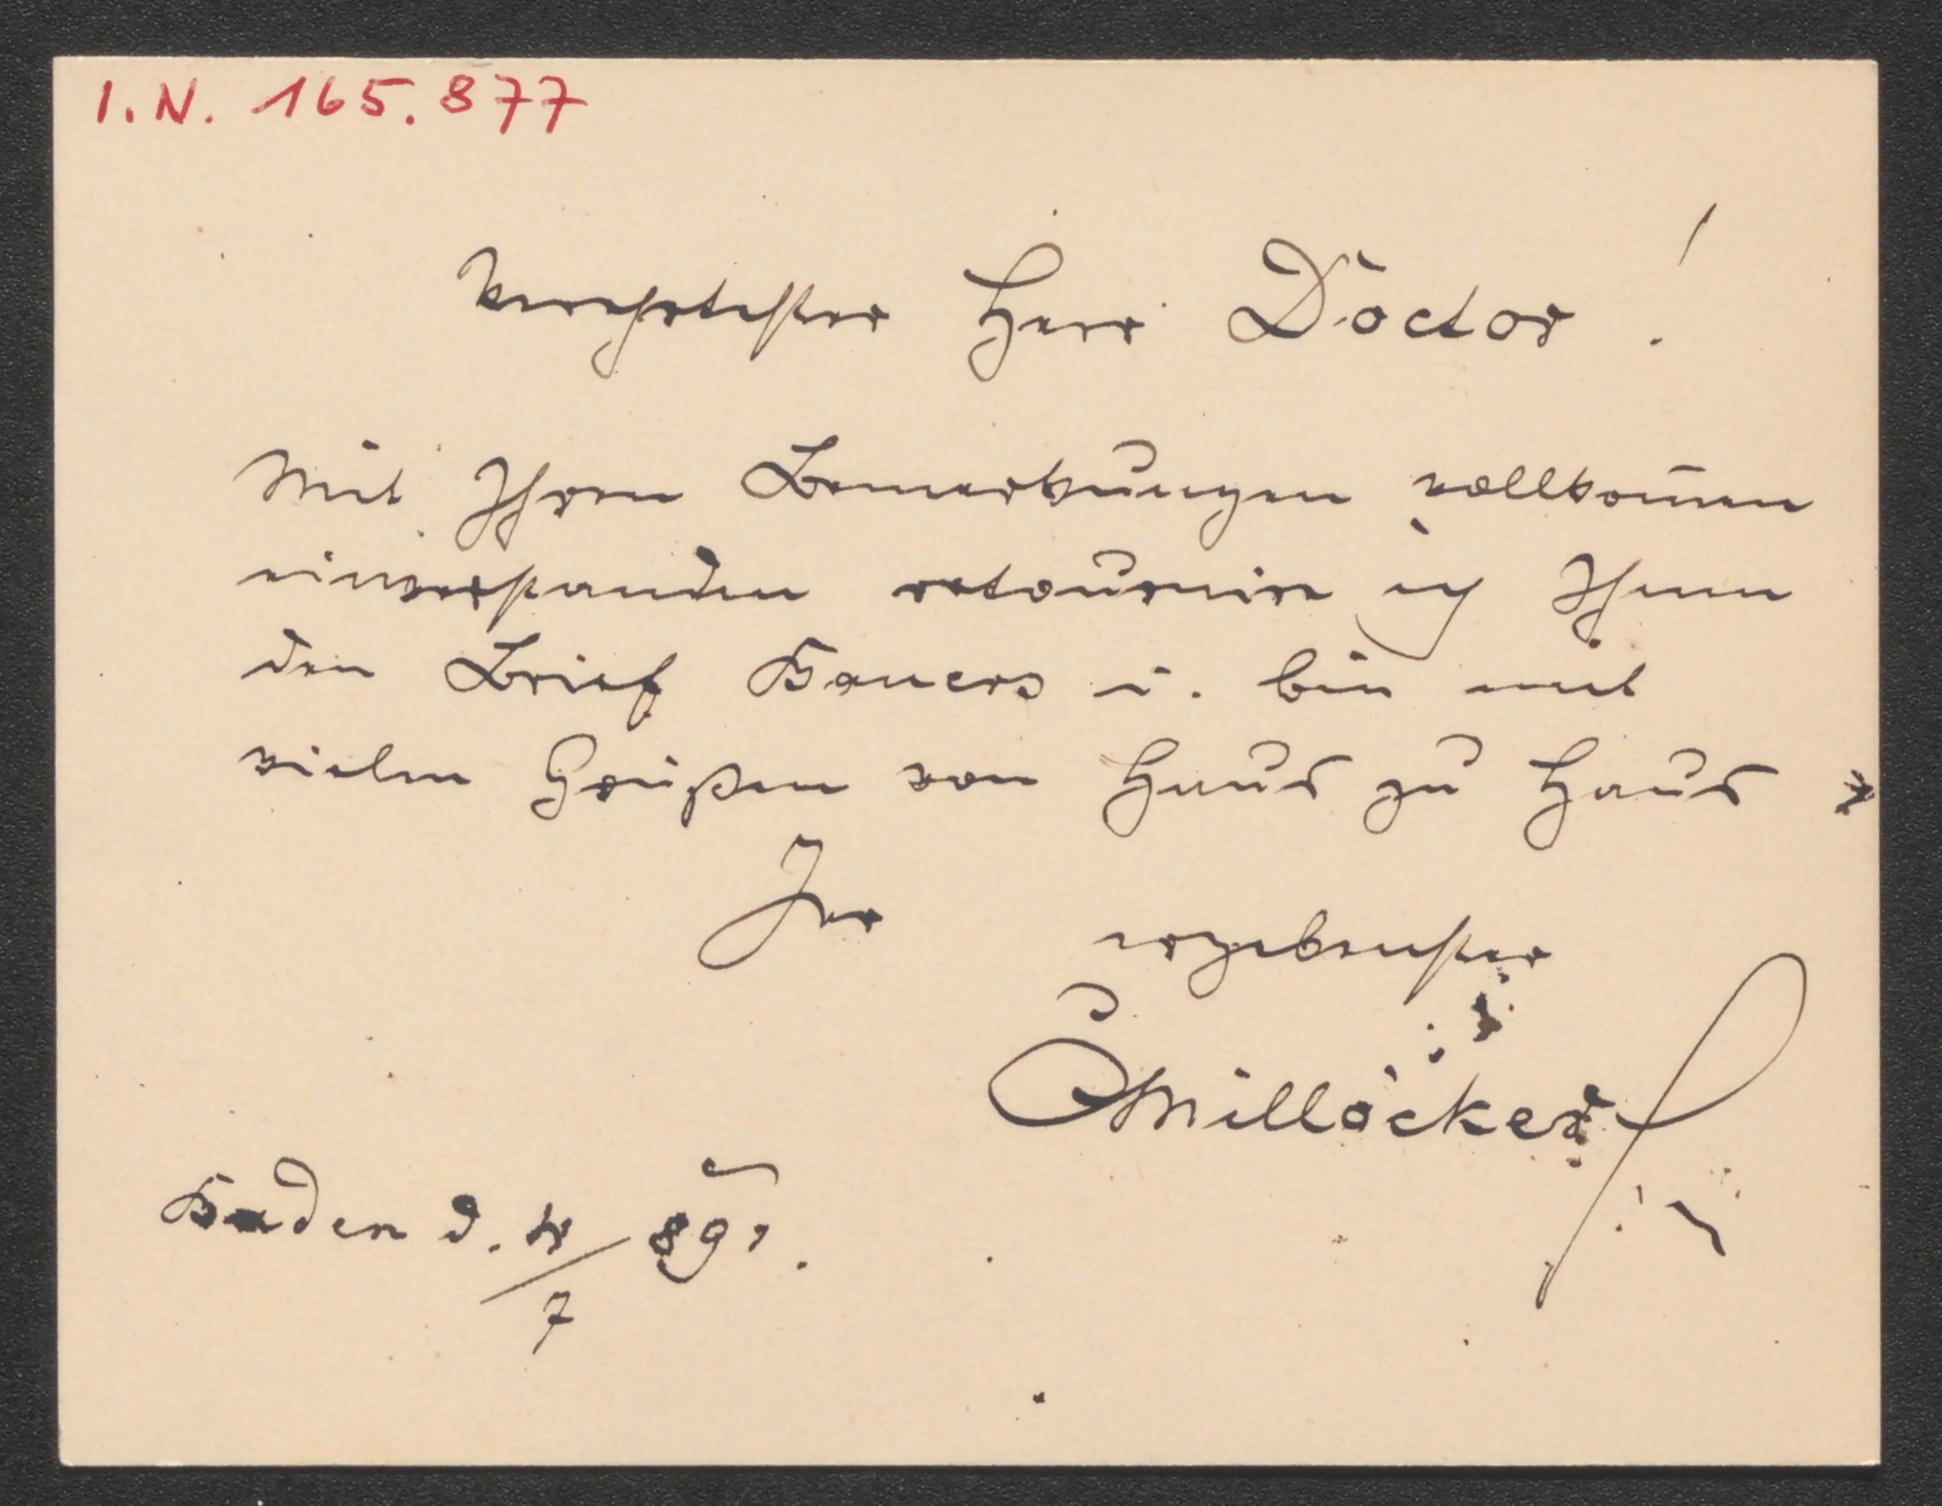 I.N. 165.877
Verehrtester Herr Doctor!
Mit Ihren Bemerkungen vollkom̄en
einverstanden retournire ich Ihnen
den Brief Bauers u. bin mit
vielen Grüßen von Haus zu Haus
Ihr ergebenster
CMillöcker
Baden d. 4/7 891.